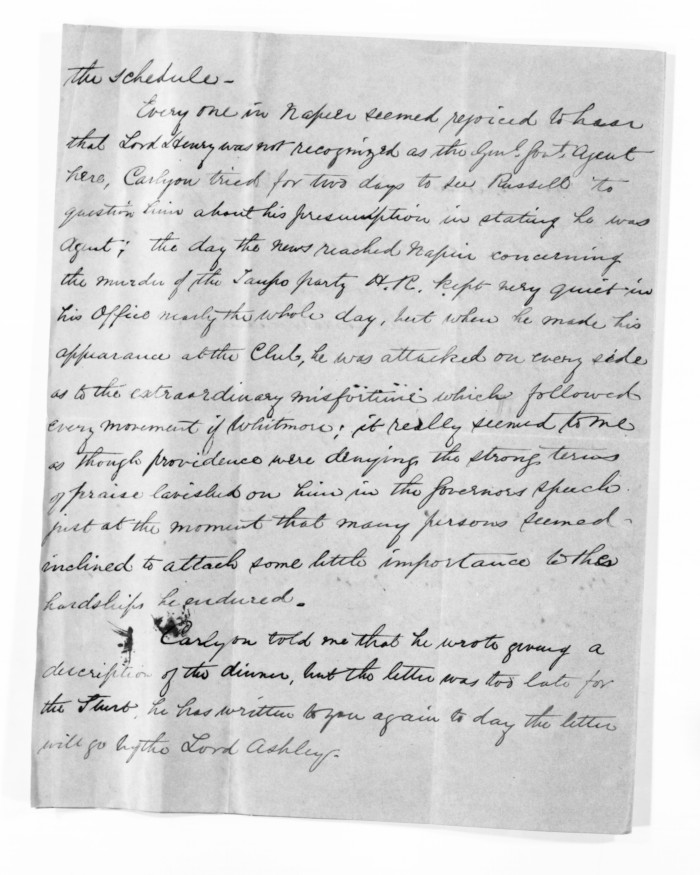 the schedule –
Every one in Napier seemed rejoiced to hear
that Lord Henry was not recognized as the Genl. Govt. Agent
here, Carlyon tried for two days to see Russell to
question him about his presumption in stating he was
Agent; the day the news reached Napier concerning
the murder of the Taupo party H.R. kept very quiet in
his Office nearly the whole day, but when he made his
appearance at the Club, he was attacked on every side
as to the extraordinary misfortune which followed
every movement of Whitmore; it really seemed to me
as though providence were denying the strong terms
of praise lavished on him in the Governors speech
just at the moment that many persons seemed
inclined to attach some little importance to the
hardships he endured.
Carlyon told me that he wrote giving a
description of the dinner, but the letter was too late for
the Sturt, he has written to you again to day the letter
will go by the Lord Ashley.